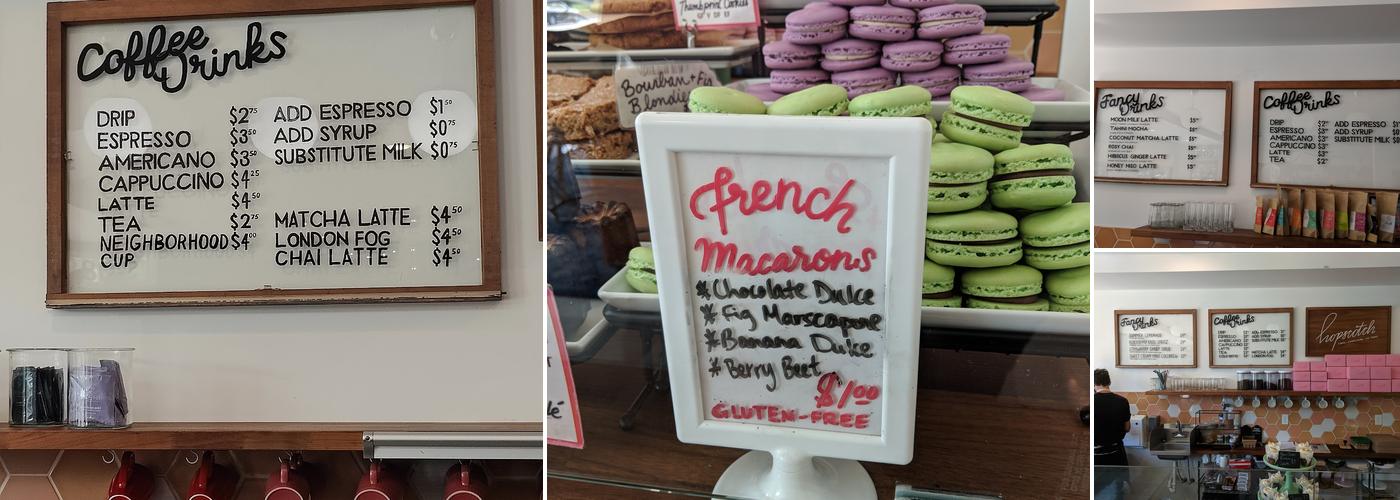 Coffee
Drinks
DRIP $2.75
ESPRESSO $3.50
AMERICANO $3.50
CAPPUCCINO $4.25
LATTE $4.50
TEA $2.75
NEIGHBORHOOD $4.00
CUP
ADD ESPRESSO $1.50
ADD SYRUP $0.75
SUBSTITUTE MILK $0.75
MATCHA LATTE $4.50
LONDON FOG $4.50
CHAI LATTE $4.50
Thumbprint Cookies
Bourbon + Fig
Blondies
French
Macarons
* Chocolate Dulce
* Fig Marscapone
* Banana Dulce
* Berry Beet
$1.00
GLUTEN-FREE
Fancy
Drinks
MOON MILK LATTE
TAHINI MOCHA
COCONUT MATCHA LATTE
ROSY CHAI
HIBISCUS GINGER LATTE
HONEY MISO LATTE
Coffee
Drinks
DRIP
ESPRESSO
AMERICANO
CAPPUCCINO
LATTE
TEA
ADD ESPRESSO
ADD SYRUP
SUBSTITUTE MILK
Fancy
Drinks
Coffee
Drinks
DRIP
ESPRESSO
AMERICANO
CAPPUCCINO
LATTE
TEA
ADD ESPRESSO
ADD SYRUP
SUBSTITUTE MILK
MATCHA LATTE
LONDON FOG
hopscotch